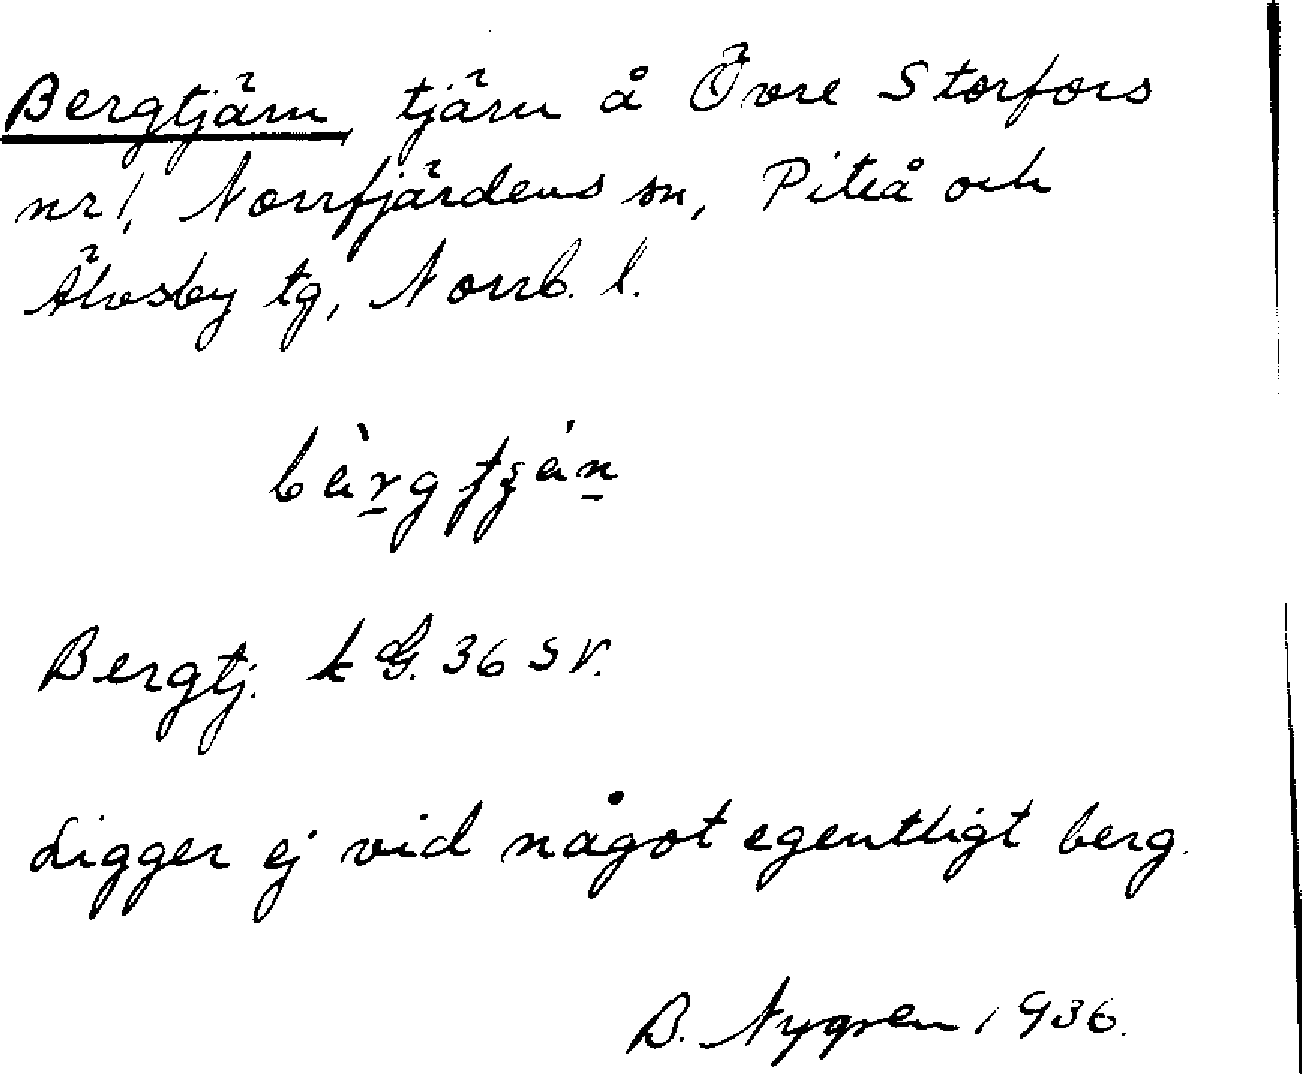 Bergtjärn, tjärn å Övre Storfors
nr 1, Norrfjärdens sn, Piteå och
Älvsby tg, Norrb. l.
Bergtj. k G. 36 SV.
Ligger ej vid något egentligt berg.
B. Nygren 1936.